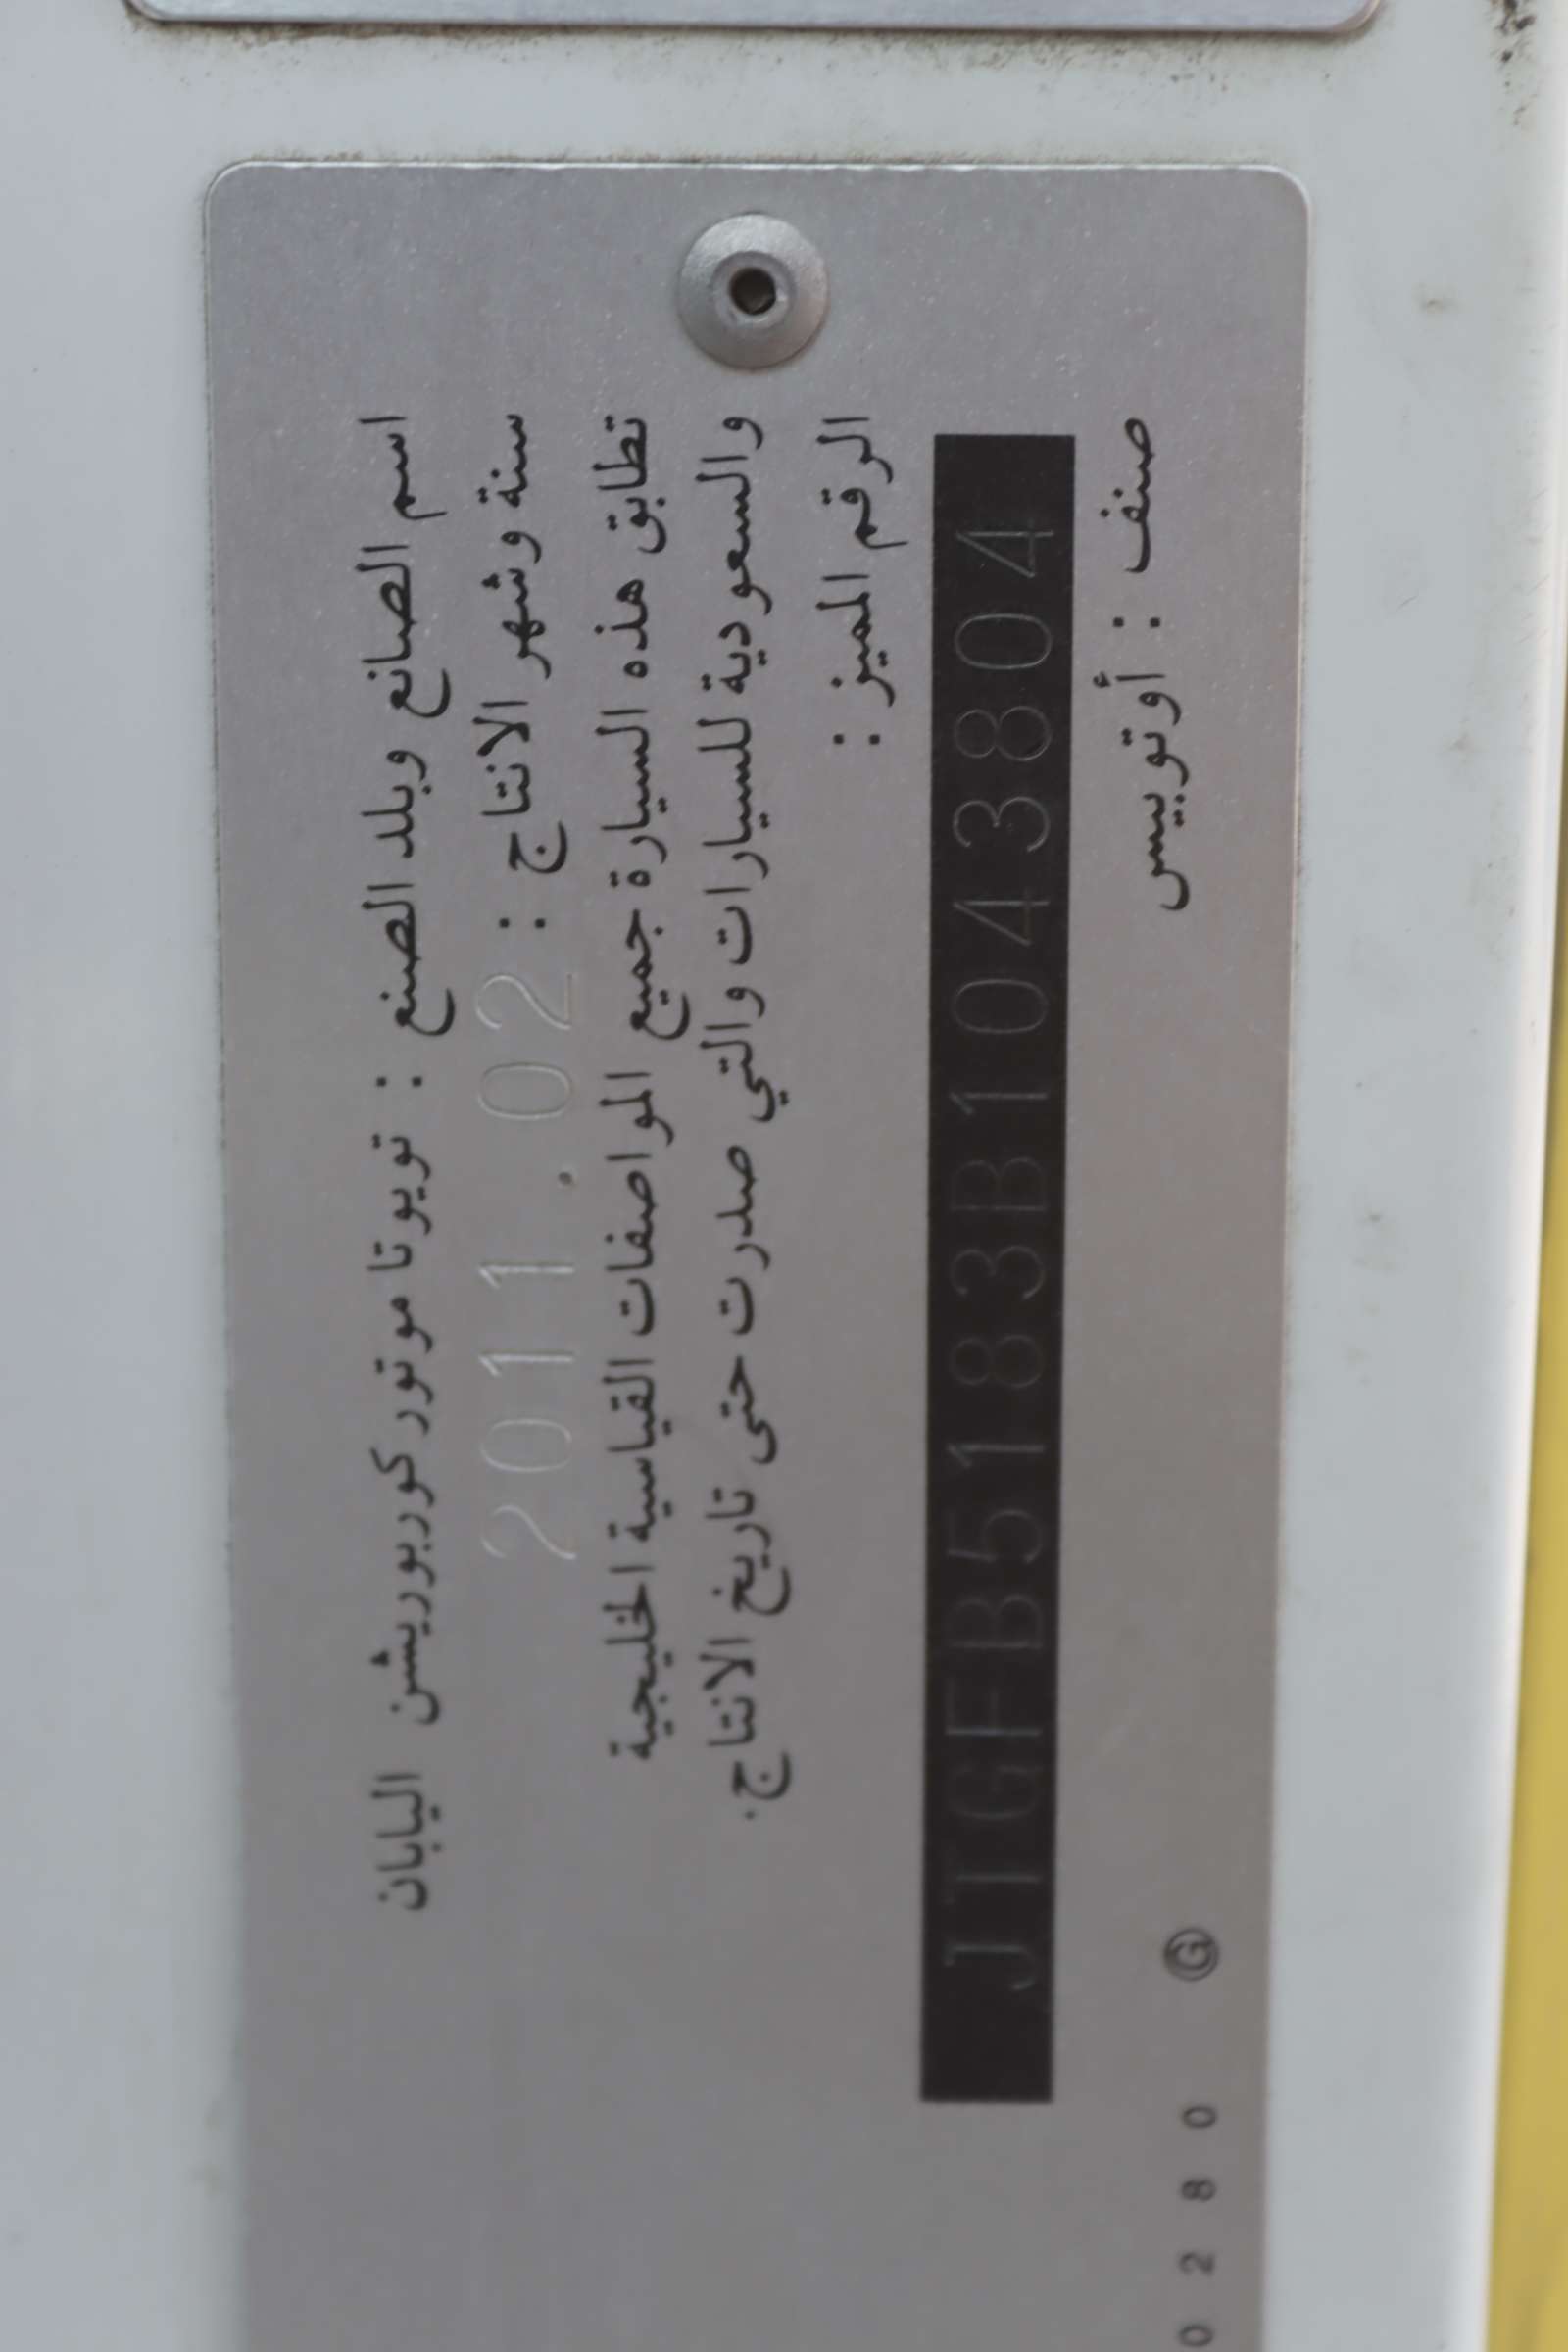 اسم الصانع وبلد الصنع : تويوتا موتور كوربوريشن اليابان
سنة وشهر الانتاج : 2011.02
تطابق هذه السيارة جميع المواصفات القياسية الخليجية
والسعودية للسيارات والتي صدرت حتى تاريخ الانتاج.
الرقم المميز :
JTGFB5183B1043804
صنف : أوتوبيس
0280 Ⓖ